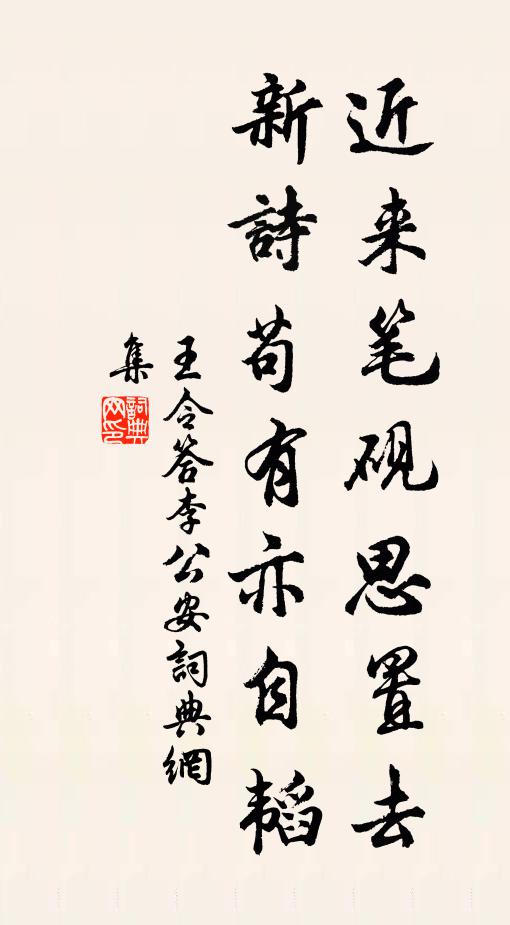 近来笔砚思置去
新詩苟有亦自韬
王令答李公安詞典網
集
詞典
网印